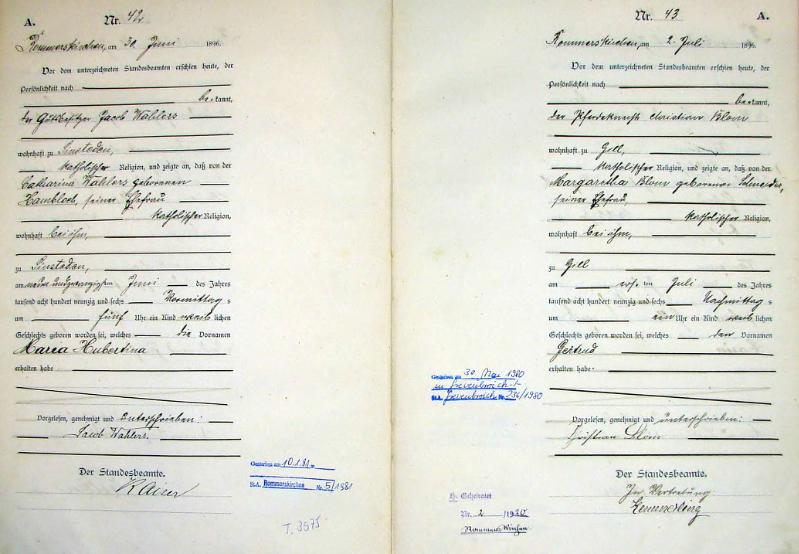 A. Nr. 42
Rommerskirchen, am 30. Juni 1896.
Vor dem unterzeichneten Standesbeamten erschien heute, der
Persönlichkeit nach
bekannt,
der Gutsbesitzer Jacob Wahlers
wohnhaft zu Sinsteden,
katholischer Religion, und zeigte an, daß von der
Catharina Wahlers geborenen
Hambloch, seiner Ehefrau
katholischer Religion,
wohnhaft bei ihm,
zu Sinsteden,
am neunundzwanzigsten Juni des Jahres
tausend acht hundert neunzig und sechs Vormittags
um fünf Uhr ein Kind weiblichen
Geschlechts geboren worden sei, welches die Vornamen
Maria Hubertina
erhalten habe
Vorgelesen, genehmigt und unterschrieben:
Jacob Wahlers.
Der Standesbeamte.
Kaiser
Gestorben am 10.1.81
St.A. Rommerskirchen Nr. 5/1981
T. 3975
Nr. 43 A.
Rommerskirchen, am 2. Juli 1896.
Vor dem unterzeichneten Standesbeamten erschien heute, der
Persönlichkeit nach
bekannt,
der Pferdeknecht Christian Blom
wohnhaft zu Gill,
katholischer Religion, und zeigte an, daß von der
Margaretha Blom geborenen Schneider,
seiner Ehefrau,
katholischer Religion,
wohnhaft bei ihm,
zu Gill
am ersten Juli des Jahres
tausend acht hundert neunzig und sechs Nachmittags
um ein Uhr ein Kind weiblichen
Geschlechts geboren worden sei, welches den Vornamen
Gertrud
erhalten habe.
Vorgelesen, genehmigt und unterschrieben:
Christian Blom
Der Standesbeamte.
In Vertretung
Gestorben am 30. Mai 1980
in Grevenbroich
St.A. Grevenbroich Nr. 256/1980
Geheiratet
Nr. 2